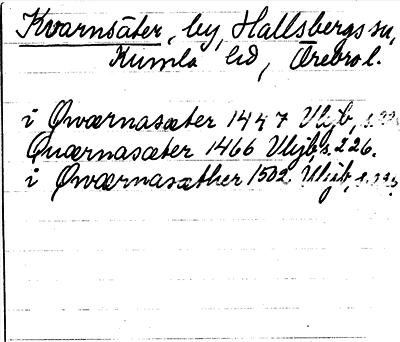 Kvarnsäter, by, Hallsbergs sn,
Kumla hd, Örebro l.
i Qwærnasæter 1447 Vlijb, s.
Quærnasæter 1466 Vlijb, s. 226.
i Qwærnasæther 1502 Vlijb, s.